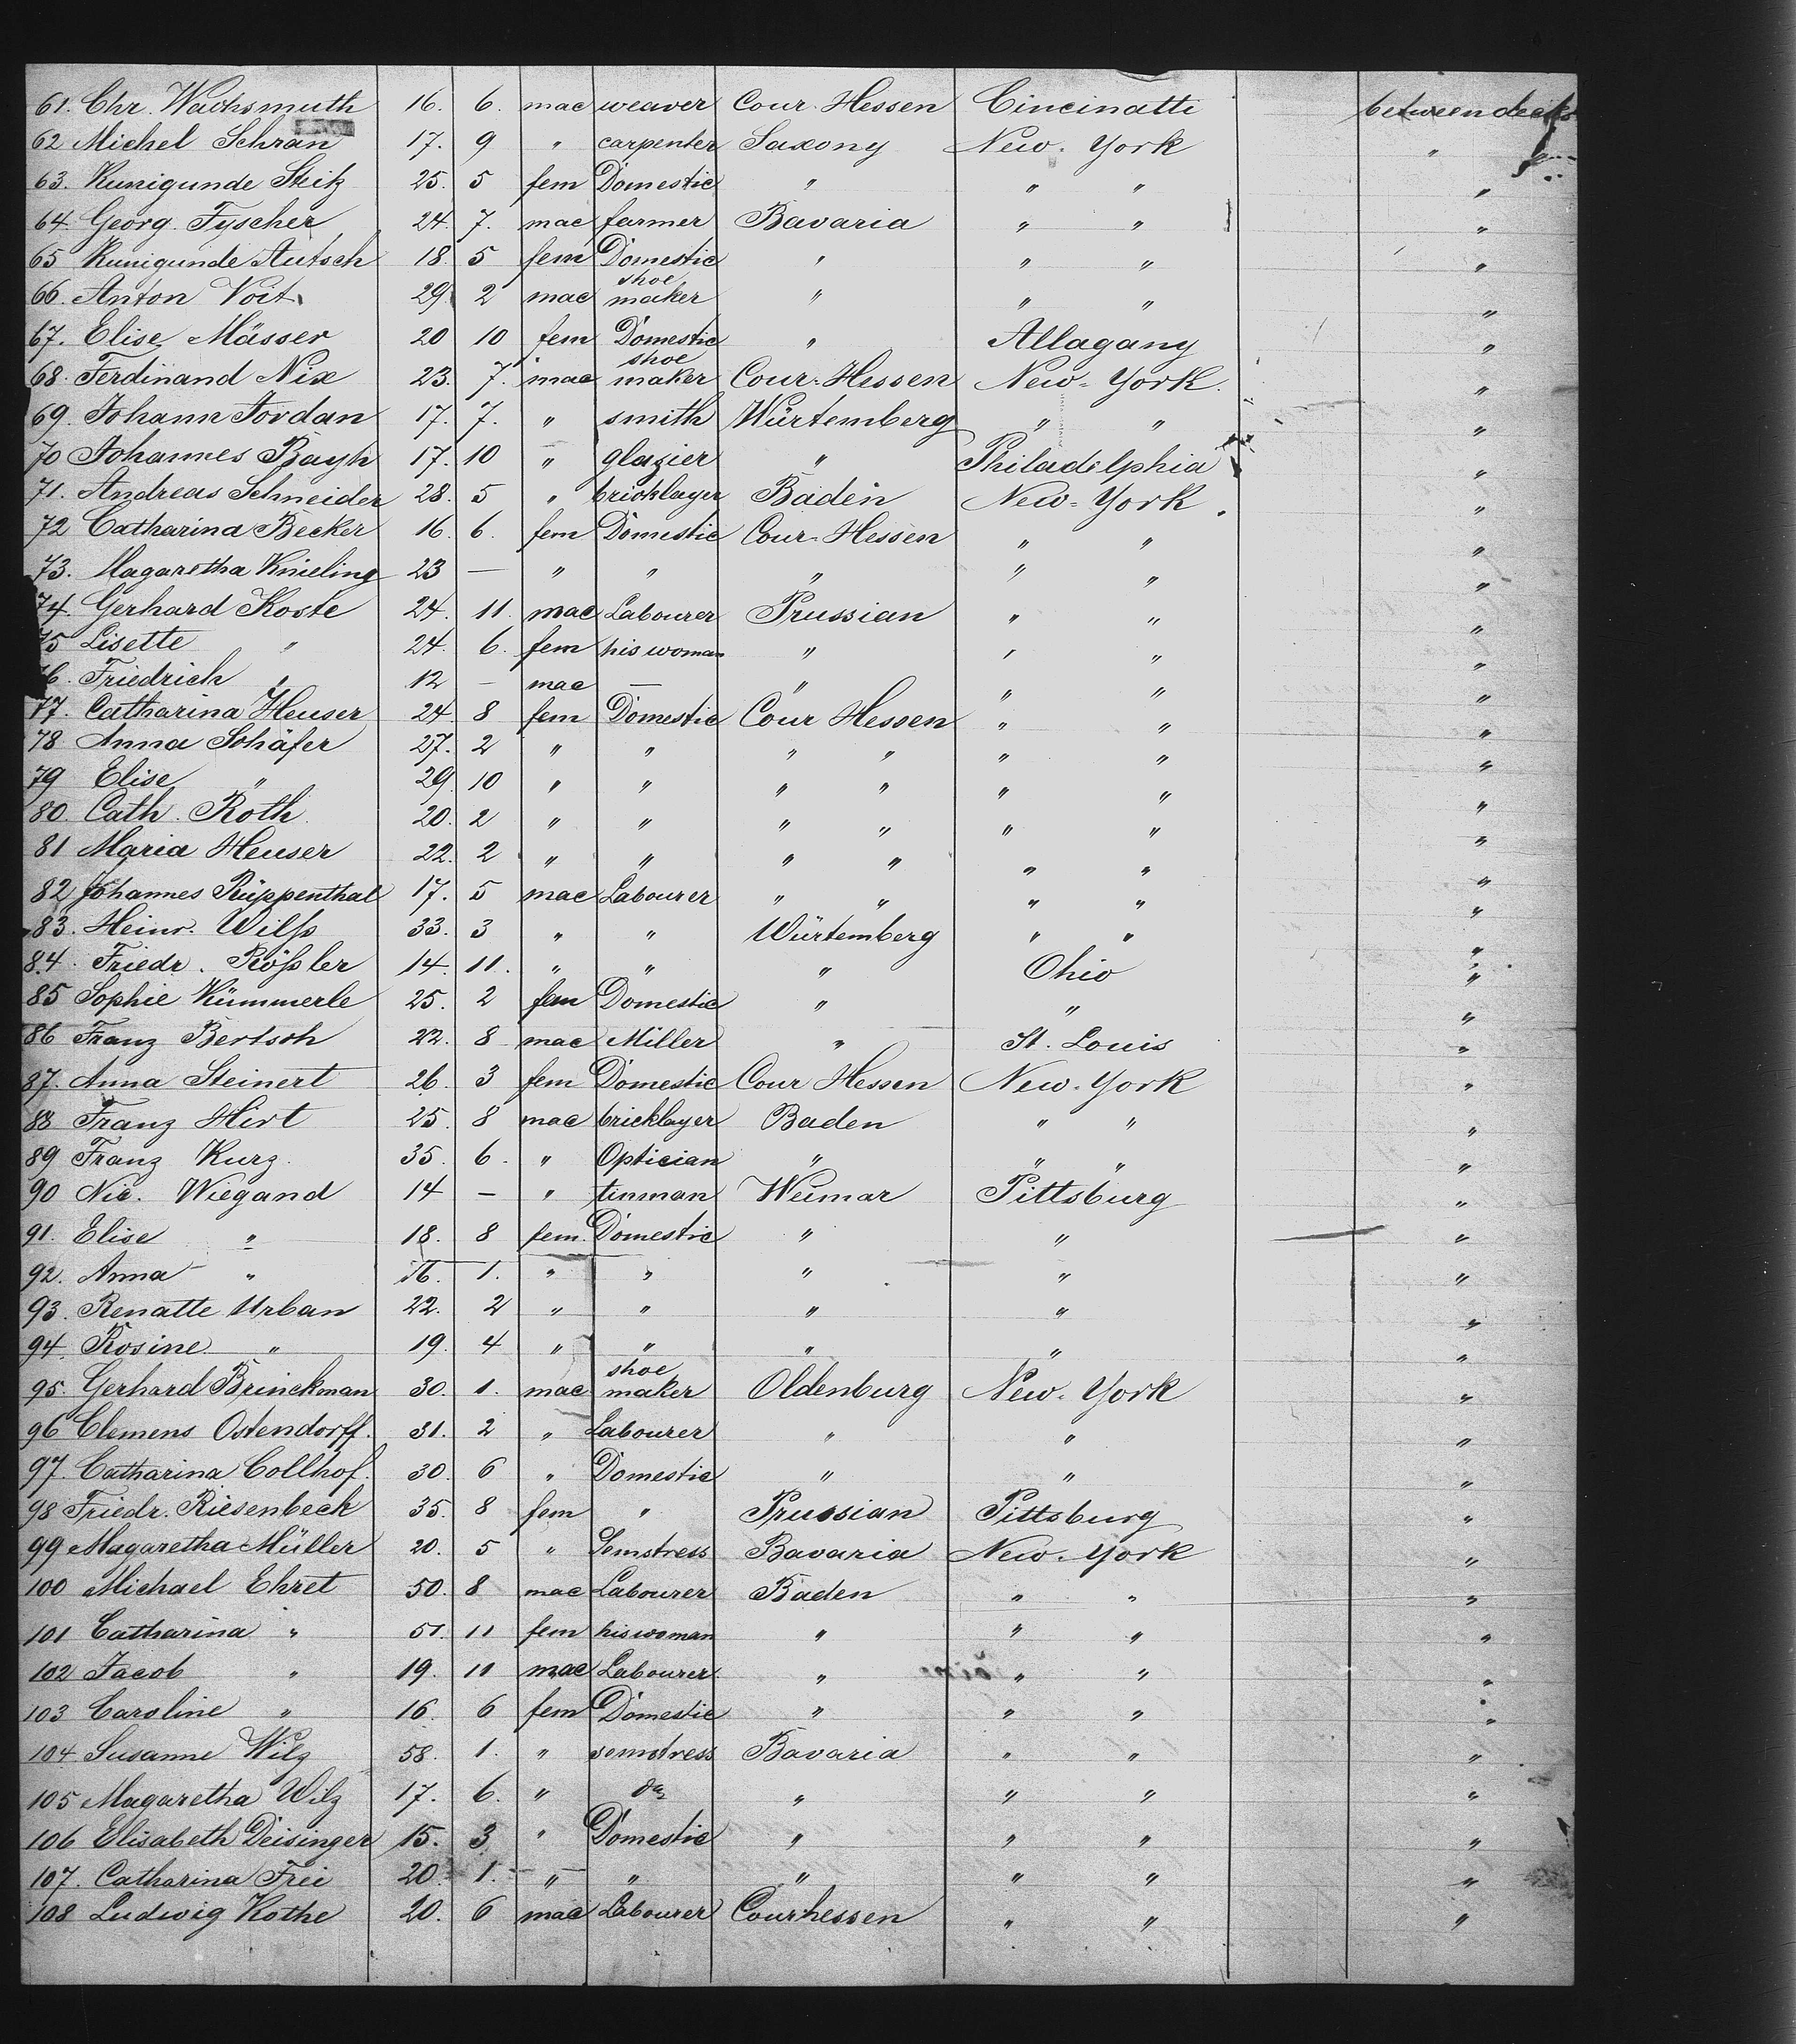 61. Chr. Wachsmuth 16. 6. mac weaver Cour. Hessen Cincinatti between decks
62 Michel Schran 17. 9 " carpenter Saxony New. York "
63. Kunigunde Steitz 25. 5 fem Domestic " " " "
64. Georg. Fyscher 24. 7. mac farmer Bavaria " " "
65 Kunigunde Autsch 18. 5 fem Domestic " " " "
66. Anton Voit 29. 2 mac shoe maker " " " "
67. Elise Mässer 20 10 fem Domestic " Allagany "
68. Ferdinand Nix 23. 7. mac shoe maker Cour. Hessen New-York. "
69. Johann Jordan 17. 7. " smith Würtemberg " " "
70 Johannes Bayh 17. 10 " glazier " Philadelphia "
71. Andreas Schneider 28. 5 " bricklayer Baden New-York "
72 Catharina Becker 16. 6. fem Domestic Cour-Hessen " " "
73. Magaretha Knieling 23 — " " " " " "
74. Gerhard Koste 24. 11. mac Labourer Prussian " " "
75 Lisette " 24. 6. fem his woman " " " "
76. Friedrich " 12 — mac — " " " "
77. Catharina Heuser 24. 8 fem Domestic Cour Hessen " " "
78. Anna Schäfer 27. 2 " " " " " " "
79 Elise " 29. 10 " " " " " " "
80. Cath. Roth. 20. 2 " " " " " " "
81 Maria Heuser 22. 2 " " " " " " "
82 Johannes Rüppenthal 17. 5 mac Labourer " " " " "
83. Heinr. Wilss 33. 3 " " Würtemberg " " "
84. Friedr. Rössler 14. 11. " " " Ohio "
85 Sophie Kümmerle 25. 2 fem Domestic " " "
86 Franz Bertsch 22. 8 mac Miller " St. Louis "
87. Anna Steinert 26. 3 fem Domestic Cour Hessen New-York "
88 Franz Hirt 25. 8 mac bricklayer Baden " " "
89 Franz Kurz. 35. 6. " Optician " " " "
90 Nic. Wiegand 14 — " tinman Weimar Pittsburg "
91. Elise " 18. 8 fem. Domestic " " "
92. Anna " 16. 1. " " " " "
93. Renatte Urban 22. 2 " " " " "
94. Rosine " 19. 4 " " " " "
95. Gerhard Brinckman 30. 1. mac shoe maker Oldenburg New. York "
96 Clemens Ostendorff. 31. 2 " Labourer " " "
97. Catharina Collhof. 30. 6 " Domestic " " "
98 Friedr. Riesenbeck 35. 8 fem " Prussian Pittsburg "
99 Magaretha Müller 20. 5 " Semstress Bavaria New. York "
100 Michael Ehret 50. 8 mac Labourer Baden " " "
101 Catharina " 51. 11 fem his woman " " " "
102 Jacob " 19. 11 mac Labourer " " " "
103 Caroline " 16. 6 fem Domestic " " " "
104 Susanne Wilz 58. 1. " semstress Bavaria " " "
105 Magaretha Wilz 17. 6. " do " " " "
106 Elisabeth Deisinger 15. 3 " Domestic " " " "
107. Catharina Frei 20. 1. " " " " " "
108 Ludwig Kothe 20. 6 mac Labourer Courhessen " " "